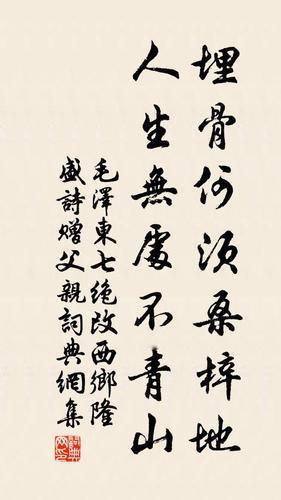 埋骨何須桑梓地
人生無處不青山
毛澤東七絶改西鄉隆
盛詩贈父親詞典網集